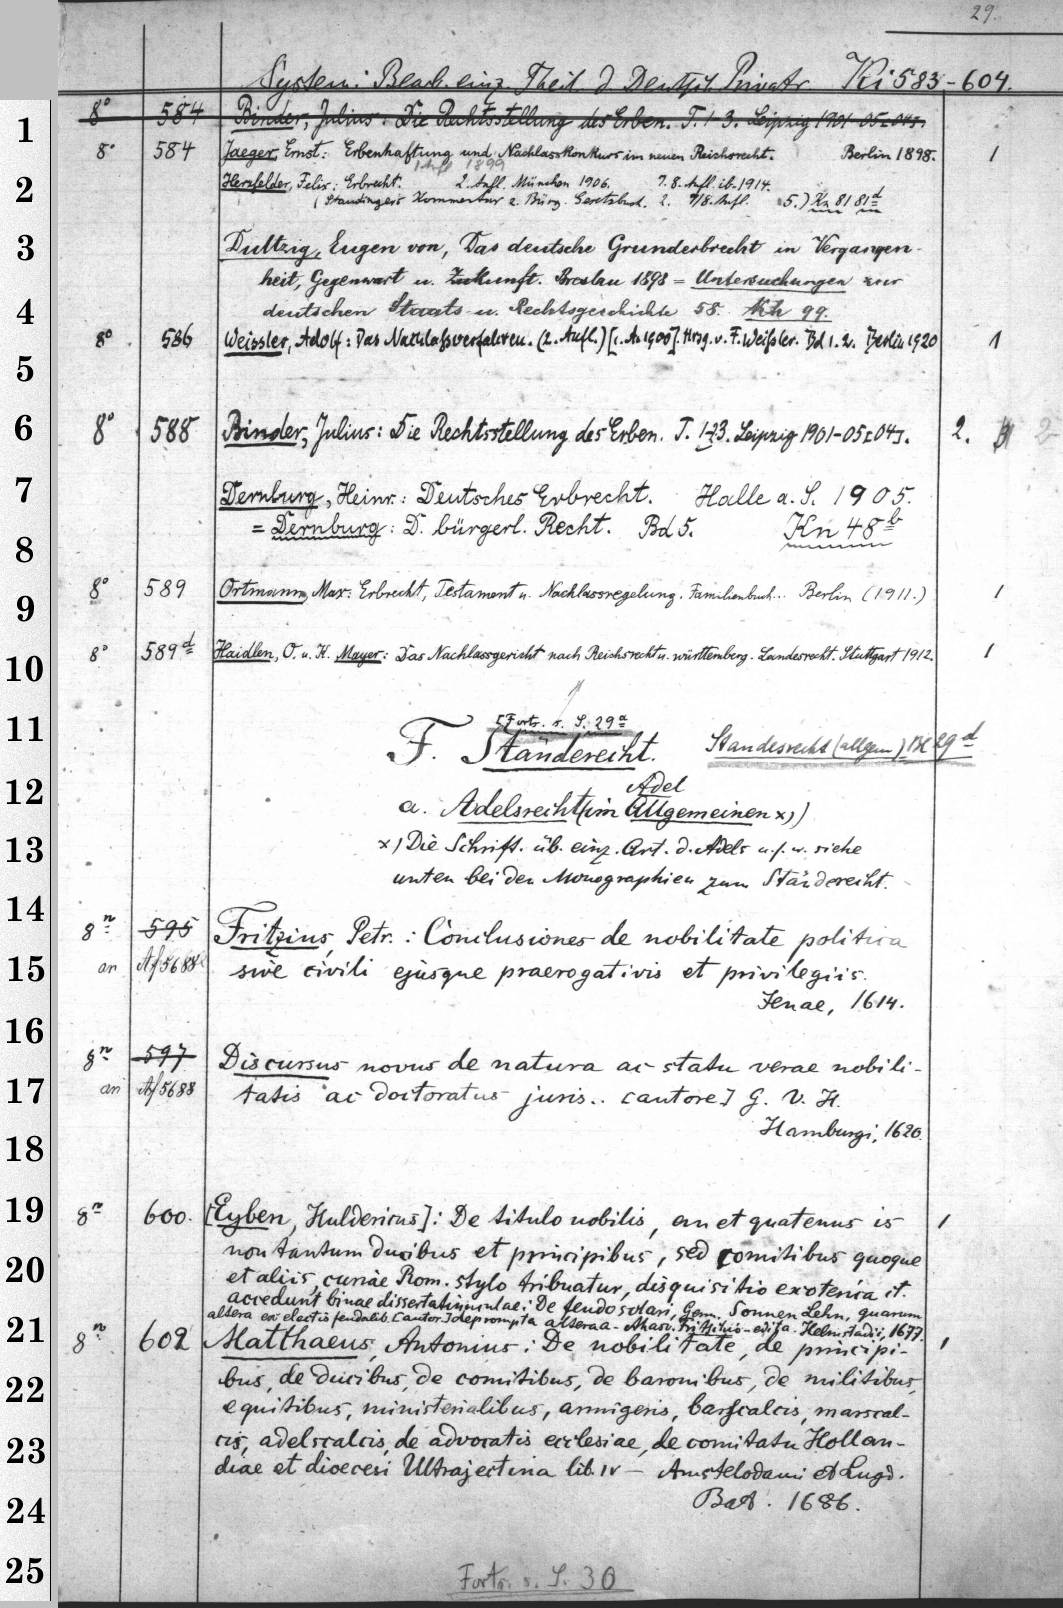 29.
System: Bearb. einz. Theil. d. Deutsch. Privatr. Ki 583-604.
1 8° 584 Binder, Julius: Die Rechtsstellung des Erben. T. 1-3. Leipzig 1901-05[04].
8° 584 Jaeger, Ernst: Erbenhaftung und Nachlasskonkurs im neuen Reichsrecht. Berlin 1898. 1
1 Aufl 1899
2 Herzfelder, Felix: Erbrecht. 2. Aufl. München 1906. 7.8. Aufl. ib. 1914.
(Staudingers Kommentar z. Bürg. Gesetzbuch. 2. 7/8. Aufl. 5.) Kn 81 81d
3 Dultzig, Eugen von, Das deutsche Grunderbrecht in Vergangen-
heit, Gegenwart u. Zukunft. Breslau 1898 = Untersuchungen zur
4 deutschen Staats- u. Rechtsgeschichte 58. Kh 99.
8° 586 Weissler, Adolf: Das Nachlaßverfahren. (2. Aufl.) [1. A. 1900]. Hrsg. v. F. Weißler. Bd 1. 2. Berlin 1920 1
5
6 8° 588 Binder, Julius: Die Rechtsstellung des Erben. T. 1-3. Leipzig 1901-05[04]. 2. 2
7 Dernburg, Heinr.: Deutsches Erbrecht. Halle a. S. 1905.
= Dernburg: D. bürgerl. Recht. Bd 5. Kn 48b
8
9 8° 589 Ortmann, Max: Erbrecht, Testament u. Nachlassregelung. Familienbuch... Berlin (1911.) 1
10 8° 589d Haidlen, O. u. H. Mayer: Das Nachlassgericht nach Reichsrecht u. württemberg. Landesrecht. Stuttgart 1912. 1
11 [Forts. s. S. 29a
F. Ständerecht. Standesrecht (allgem.) 29d
12 Adel
a. Adelsrecht (im Allgemeinen x))
13 x) Die Schrift. üb. einz. Art. d. Adels u. s. w. siehe
unten bei den Monographien zum Ständerecht.
14 8n 595 Fritzius, Petr.: Conclusiones de nobilitate politica
15 an Af 5688 sive civili ejusque praerogativis et privilegiis.
Jenae, 1614.
16
8n 597 Discursus novus de natura ac statu verae nobili-
17 an Af 5688 tatis ac doctoratus juris.. [autore] G. V. H.
Hamburgi, 1620.
18
19 8n 600. [Eyben, Huldericus]: De titulo nobilis, an et quatenus is 1
non tantum ducibus et principibus, sed comitibus quoque
20 et aliis, curiae Rom. stylo tribuatur, disquisitio exoterica it.
accedunt binae dissertatiunculae: De feudo solari, Germ. Sonnen Lehn, quarum
altera ex electis feudalib. [autor.] deprompta altera a Ahasv. Fritschio edita. Helmstadii, 1677.
21 8n 602 Matthaeus, Antonius: De nobilitate, de principi- 1
bus, de ducibus, de comitibus, de baronibus, de militibus,
22 equitibus, ministerialibus, armigeris, barscalcis, marscal-
23 cis, adelscalcis, de advocatis ecclesiae, de comitatu Hollan-
diae et dioecesi Ultrajectina lib. IV — Amstelodami et Lugd.
24 Bat. 1686.
25 Forts. s. S. 30